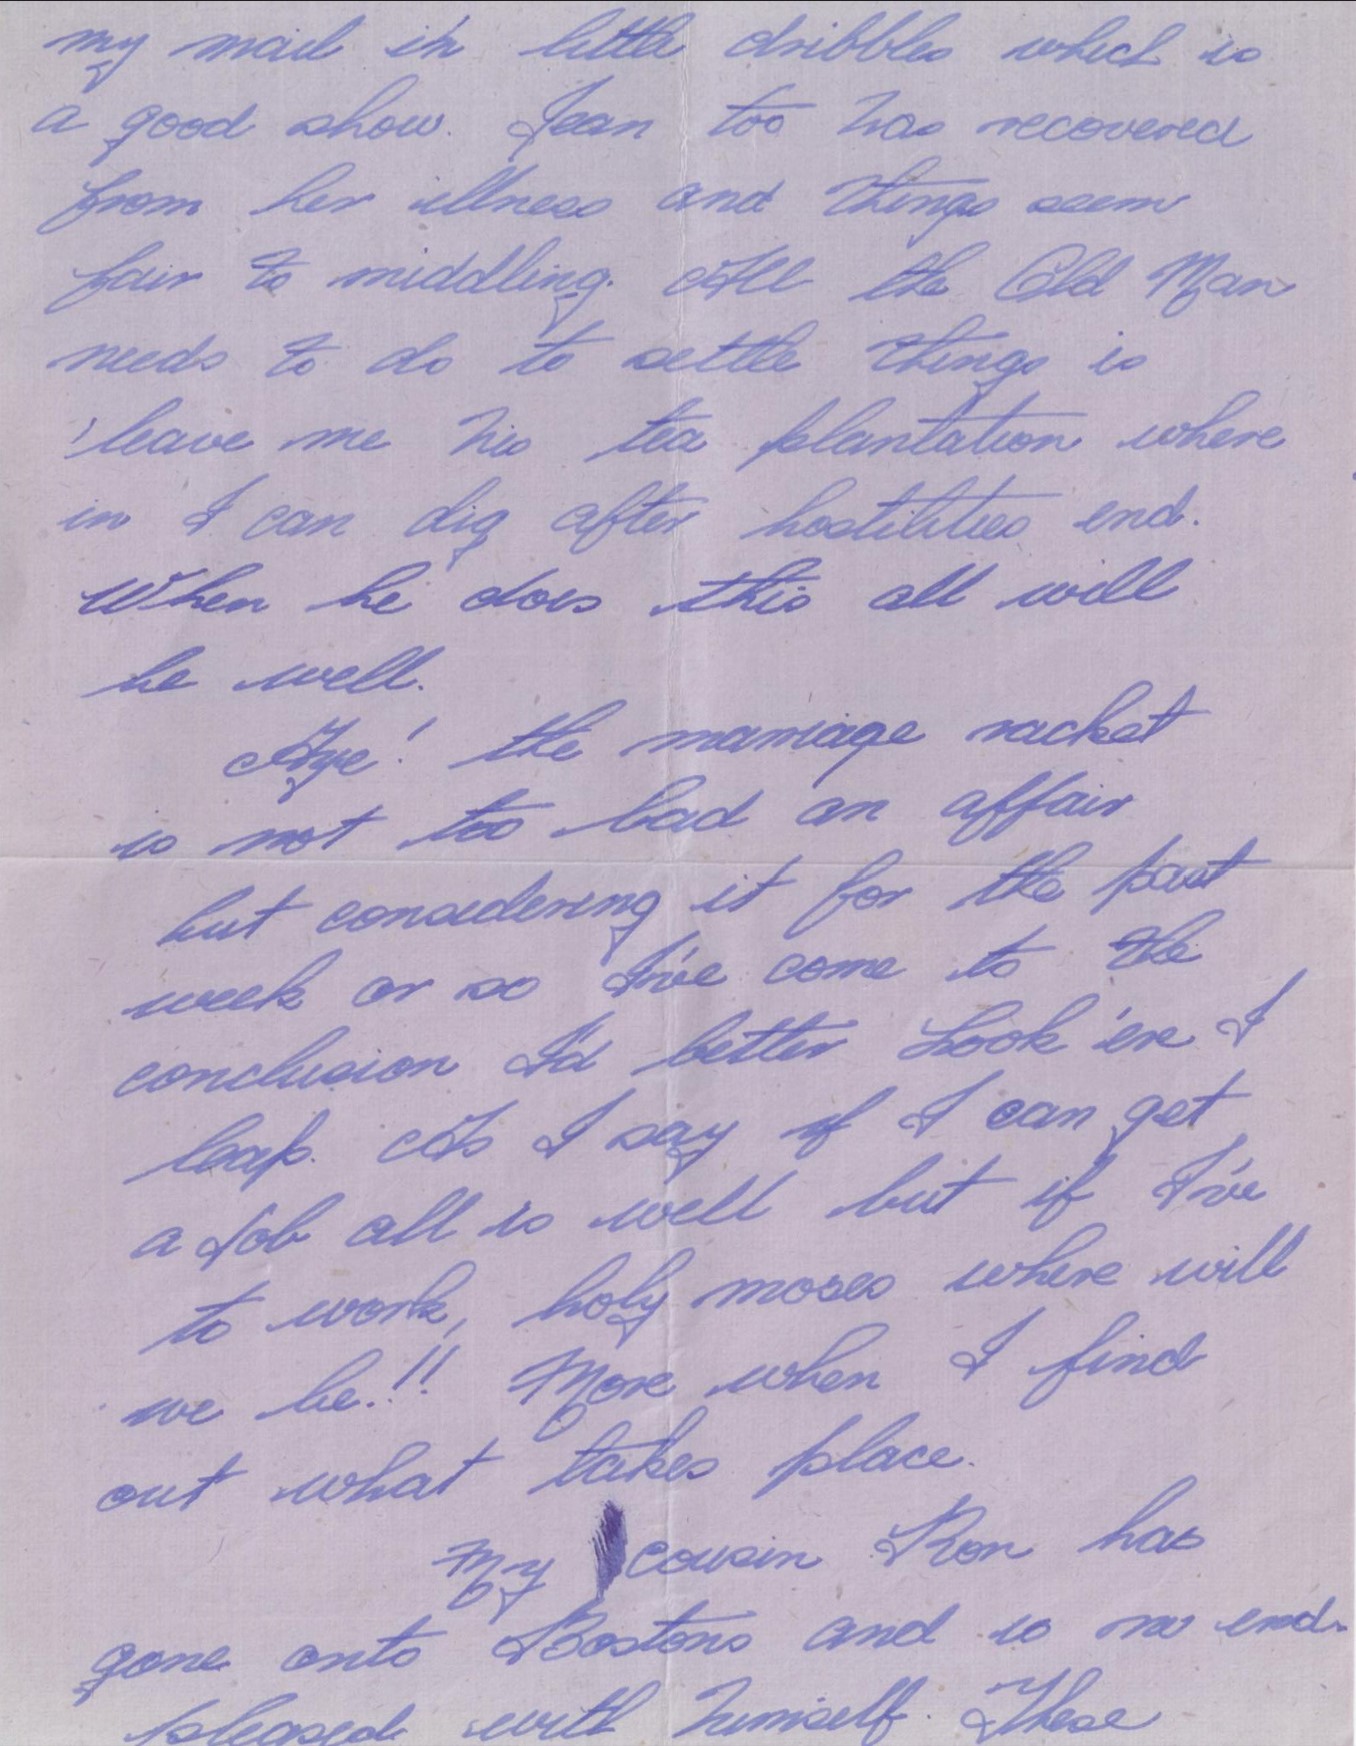 my mail in little dribbles which is
a good show. Jean too has recovered
from her illness and things seem
fair to middling. All the Old Man
needs to do to settle things is
leave me his tea plantation where
in I can dig after hostilities end.
When he does this all will
be well.
Aye! the marriage racket
is not too bad an affair
but considering it for the past
week or so I've come to the
conclusion I'd better look 'ere I
leap. As I say if I can get
a job all is well but if I've
to work, holy moses where will
we be.!! More when I find
out what takes place.
My cousin Ron has
gone onto Bostons and is no end
pleased with himself. These